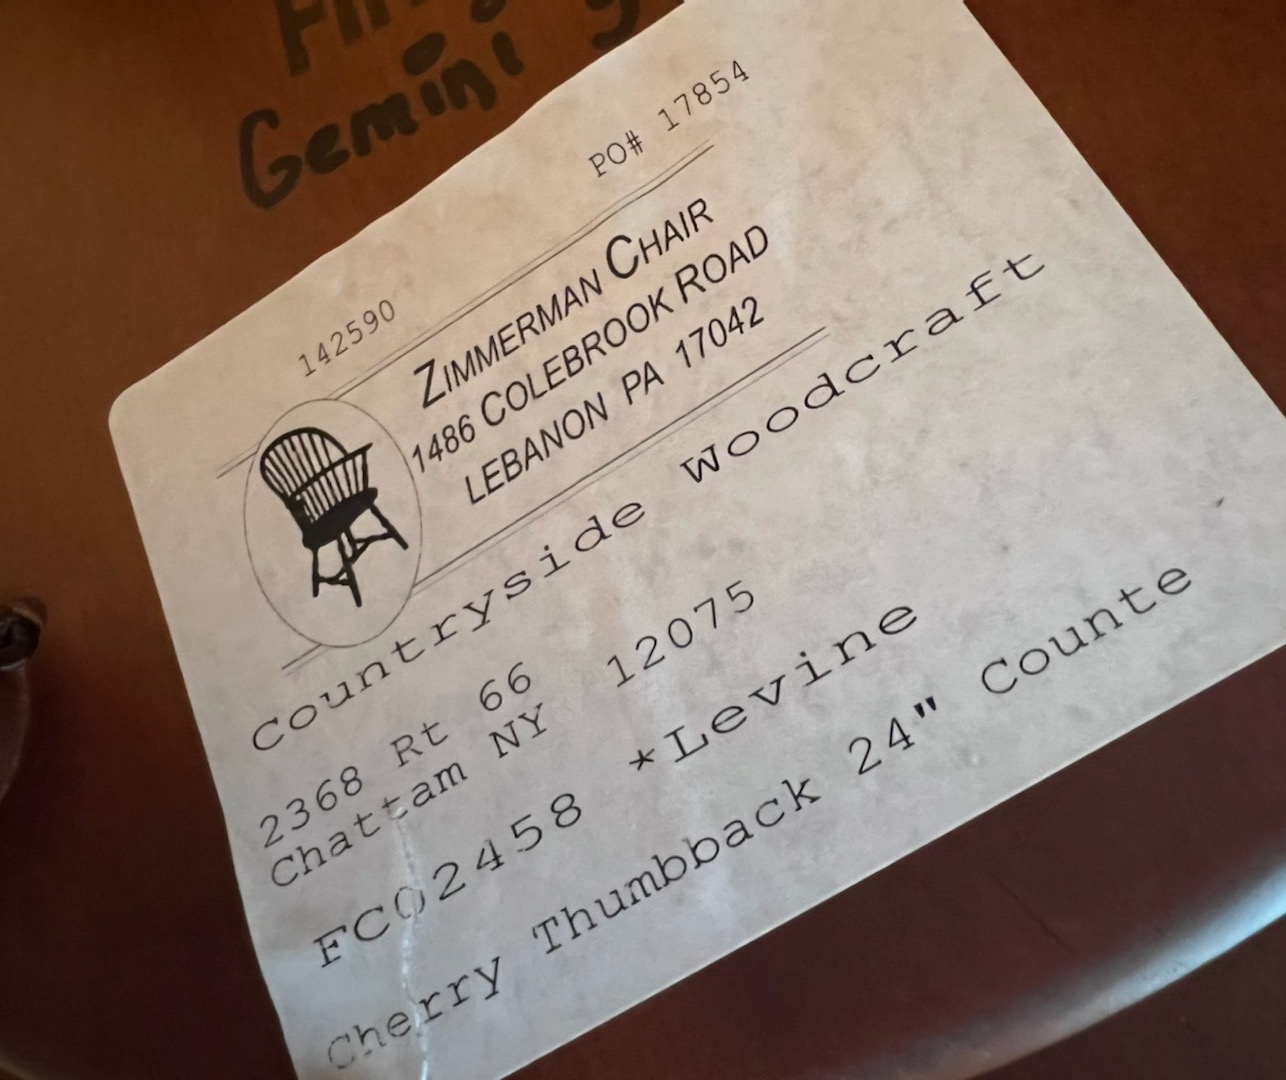 Gemini
PO# 17854
142590
ZIMMERMAN CHAIR
1486 COLEBROOK ROAD
LEBANON PA 17042
Countryside Woodcraft
2368 Rt 66
Chattam NY 12075
FC02458 *Levine
Cherry Thumbback 24" Counte